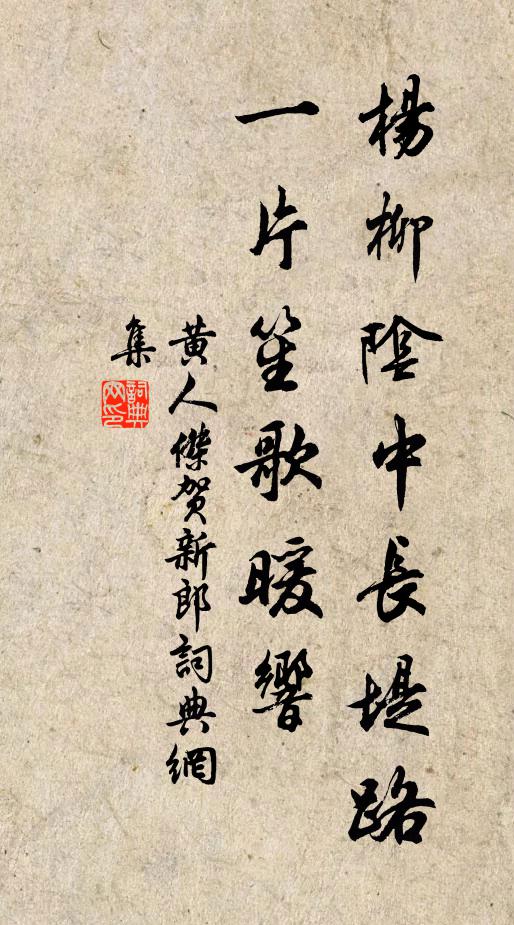 楊柳陰中長堤路
一片笙歌暖響
黄人傑贺新郎詞典網
集
詞典
网印